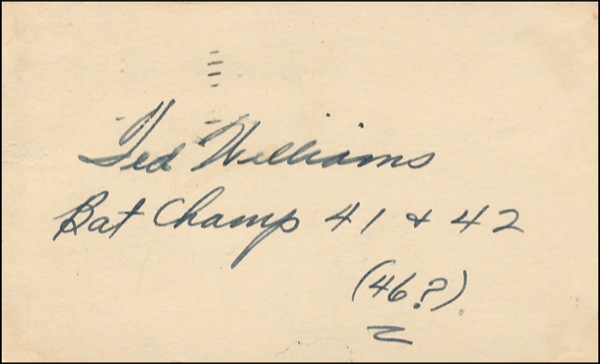 Ted Williams
Bat Champ 41 & 42
(46?).